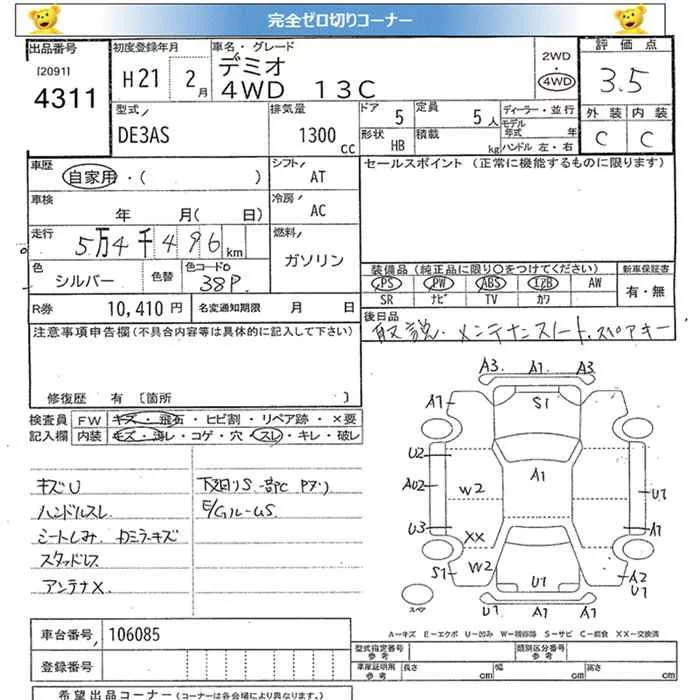 完全ゼロ切りコーナー
出品番号 初度登録年月 車名・グレード 2WD 評価点
[2091] H21 2月 デミオ 4WD 3.5
4311 4WD 13C
型式 排気量 ドア 5 定員 5人 ディーラー・並行 外装 内装
DE3AS 1300cc 形状 HB 積載 kg モデル年式 年 C C
ハンドル 左・右
車歴 シフト セールスポイント (正常に機能するものに限ります)
自家用・( ) AT
車検 冷房
年 月( 日) AC
走行 燃料
5万4千496km ガソリン
色 色替 色コードNo 装備品 (純正品に限り○をつけてください) 新車保証書
シルバー 38P PS PW ABS エアB AW 有・無
SR ナビ TV カワ
R券 10,410円 名変通知期限 月 日 後日品
注意事項申告欄(不具合内容等は具体的に記入して下さい) 取説・メンテナンスノート、スペアキー
修復歴 有 [箇所 ]
検査員 FW キズ・飛石・ヒビ割・リペア跡・×要
記入欄 内装 キズ・薄レ・コゲ・穴・スレ・キレ・破レ
キズU 下廻りS
ハンドルスレ
シートしみ
スタッドレス
アンテナX
A3 A1 A3
A1 S1
U2 A1
AU2 W2 U1
U3 A1
XX
S1 W2 U1 A2
U1
スペア U1 A1 A1
A=キズ E=エクボ U=凹み W=補修跡 S=サビ C=腐食 XX=交換済
車台番号 106085 型式指定番号 参考 類別区分番号 参考
登録番号 車庫証明用 参考 長さ cm 幅 cm 高さ cm
希望出品コーナー (コーナーは各会場により異なります。)